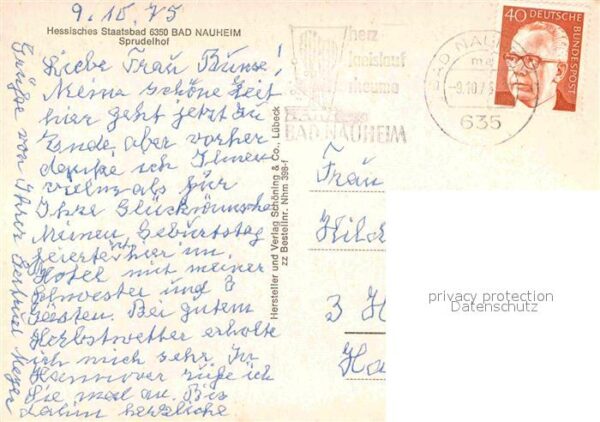 9.10.75
Hessisches Staatsbad 6350 BAD NAUHEIM
Sprudelhof
Liebe Frau Bunse!
Meine schöne Zeit
hier geht jetzt zu
Ende, aber vorher
danke ich Ihnen
vielmals für
Ihre Glückwünsche
Meinen Geburtstag
feierte ich hier im
Hotel mit meiner
Schwester und 3
Gästen. Bei gutem
Herbstwetter erholte
ich mich sehr. In
Hannover rufe ich
Sie mal an. Bis
dahin herzliche
Grüße von Ihrer Gertrud Meyer
Hersteller und Verlag Schöning & Co., Lübeck
zz Bestellnr. Nhm 398-f
herz
kreislauf
rheuma
BAD NAUHEIM
BAD NAUHEIM
-9.10.75
635
40 DEUTSCHE
BUNDESPOST
Frau
Hilde
3 Ha
privacy protection
Datenschutz